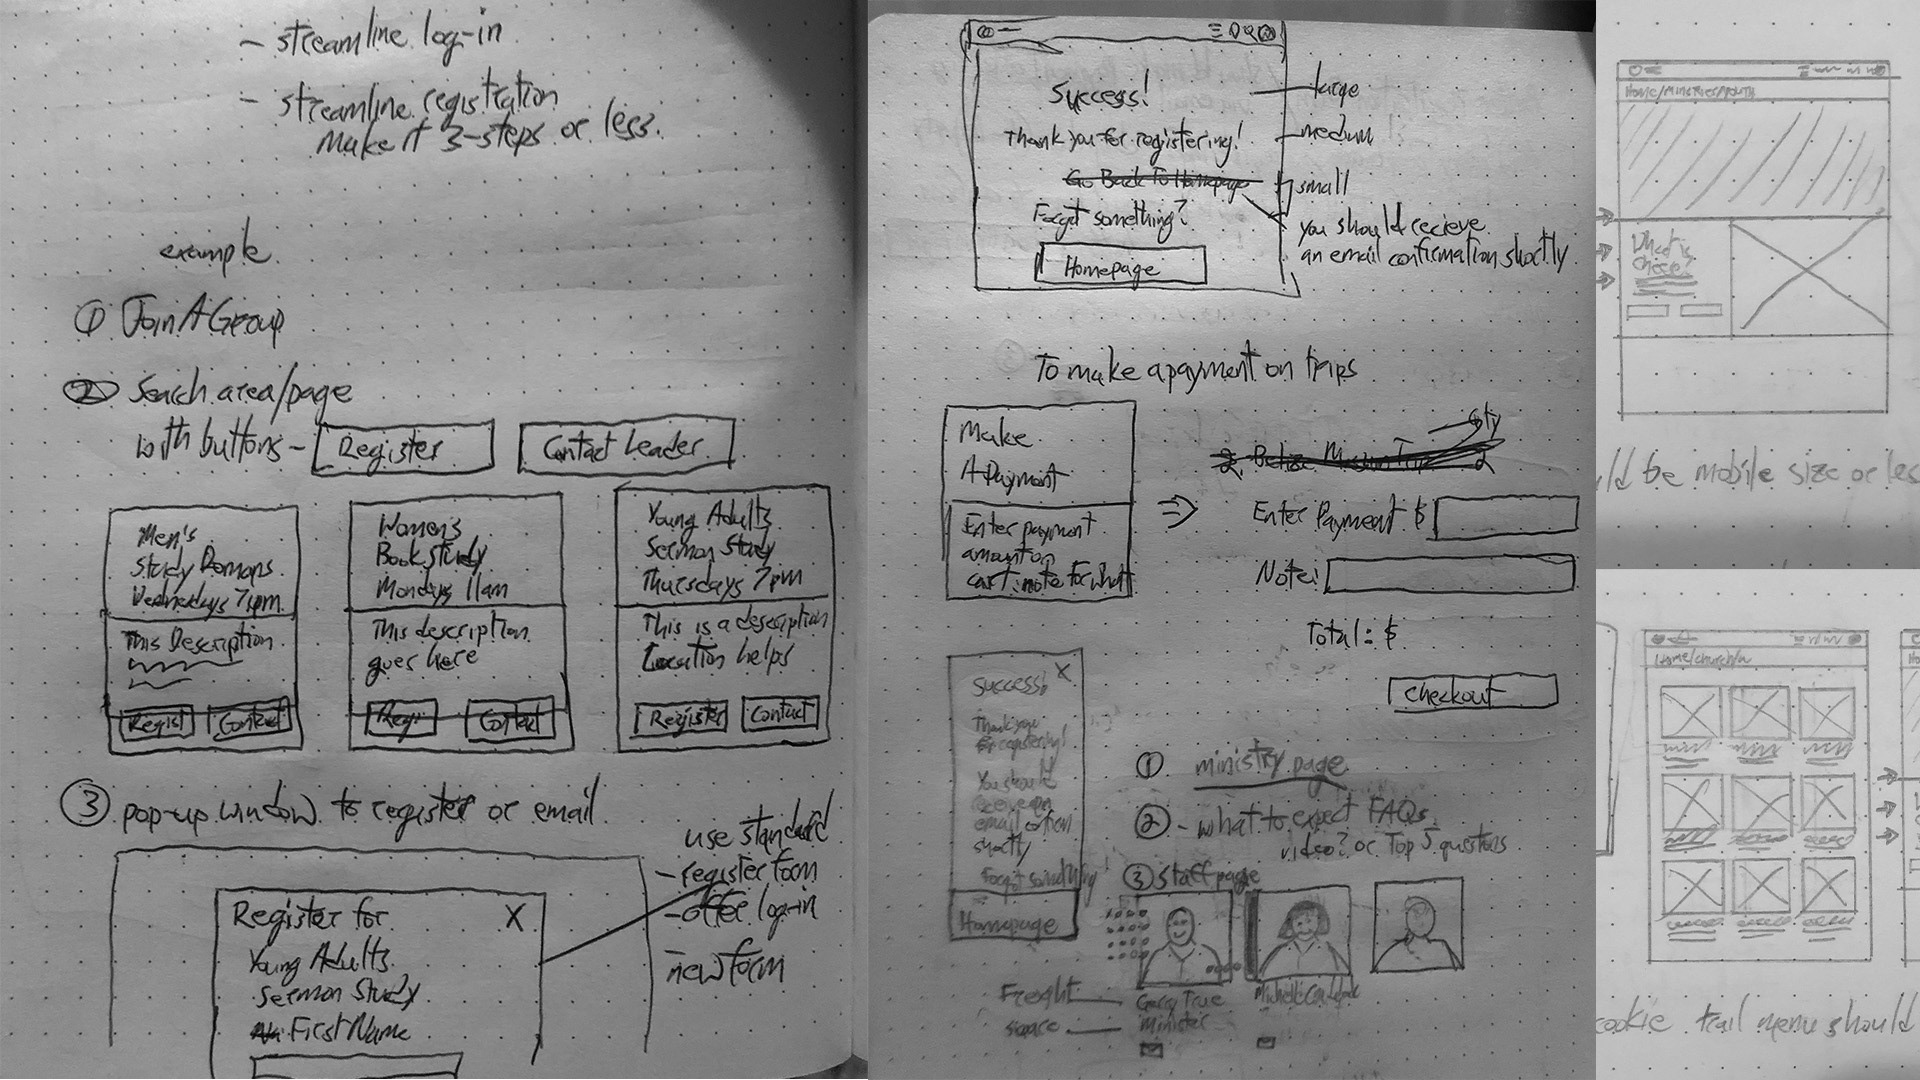 - streamline log-in
- streamline registration
make it 3-steps or less.
example
① Join A Group
② Search area/page
with buttons - Register Contact Leader
Men's
Study Romans
Wednesdays 7pm
This Description
Regist Contact
Women's
Book Study
Mondays 11am
This description
goes here
Regi Contact
Young Adults
Sermon Study
Thursdays 7pm
This is a description
Location helps
Register Contact
③ pop-up window to register or email
Register for X
Young Adults
Sermon Study
First Name
use standard
- register form
- offer log-in
- new form
Success!
Thank you for registering!
Go Back To Homepage
Forgot something?
Homepage
large
medium
small
You should recieve
an email confirmation shortly
To make a payment on trips
Make
A Payment
Enter payment
amount on
cart: note for what
⇒
Qty
2. Belize Mission Trip 2
Enter Payment $
Note:
Total: $
Checkout
Success! X
Thank you
for registering!
You should
email
shortly
Forgot something
Homepage
① ministry page
② - what to expect FAQs
video? or Top 5 questions
③ Staff page
Freight
space
Gerry True
Minister
Michelle
What is
be mobile size or les
Home/church/
ookie trail menu should